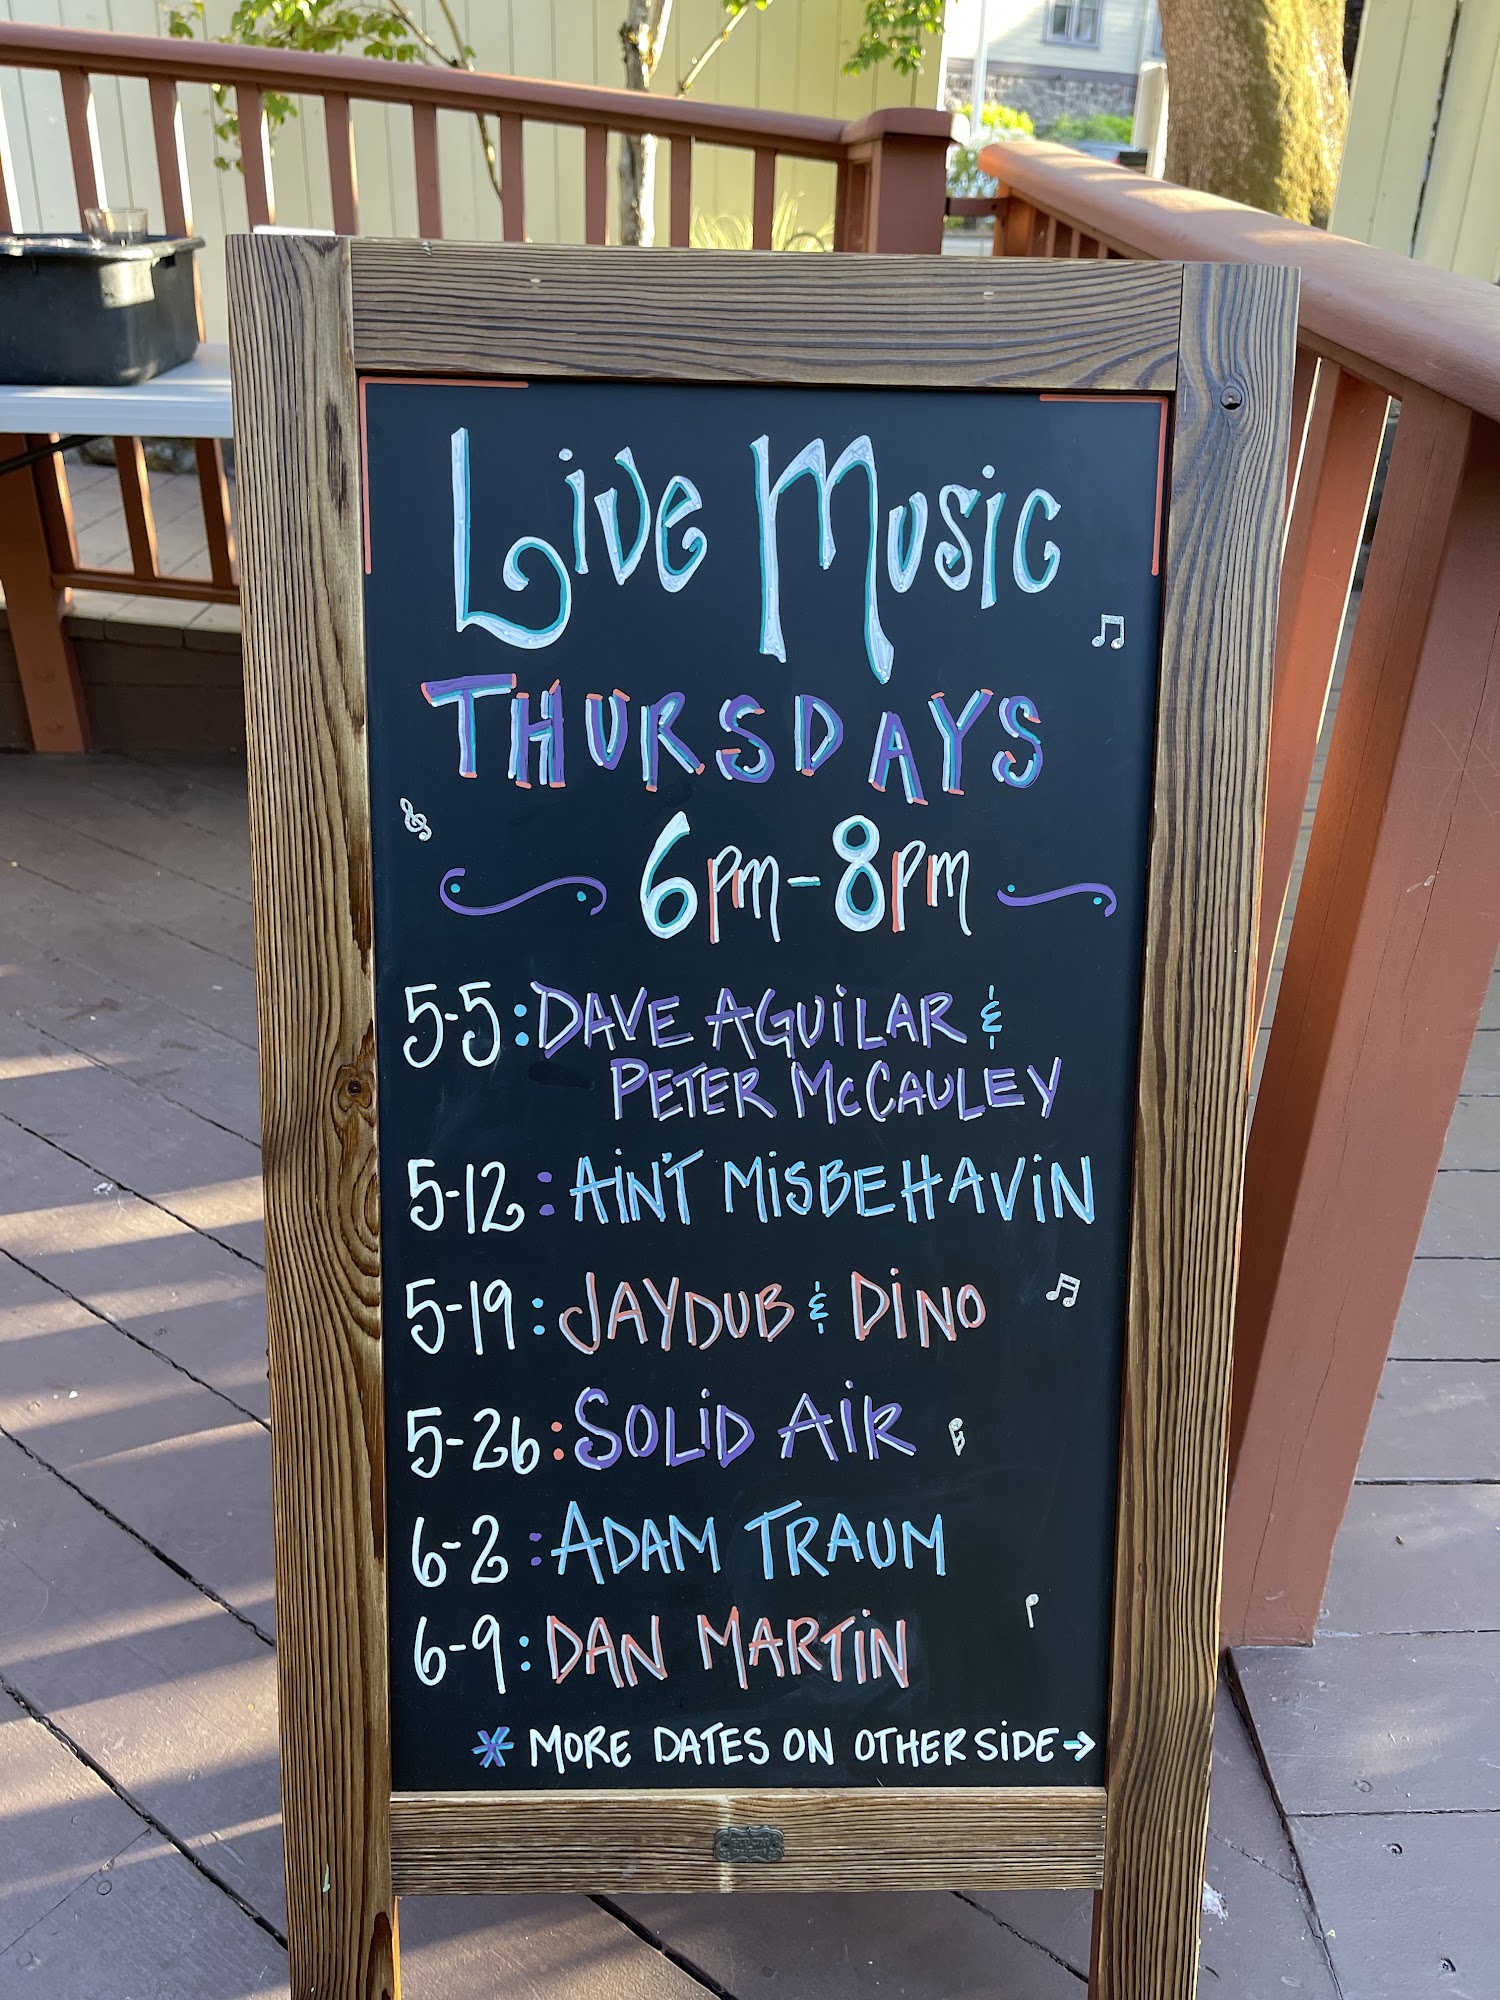 Live Music
THURSDAYS
6pm-8pm
5-5: DAVE AGUILAR &
PETER McCAULEY
5-12: AIN'T MISBEHAVIN
5-19: JAYDUB & DINO
5-26: SOLID AIR
6-2: ADAM TRAUM
6-9: DAN MARTIN
* MORE DATES ON OTHER SIDE →